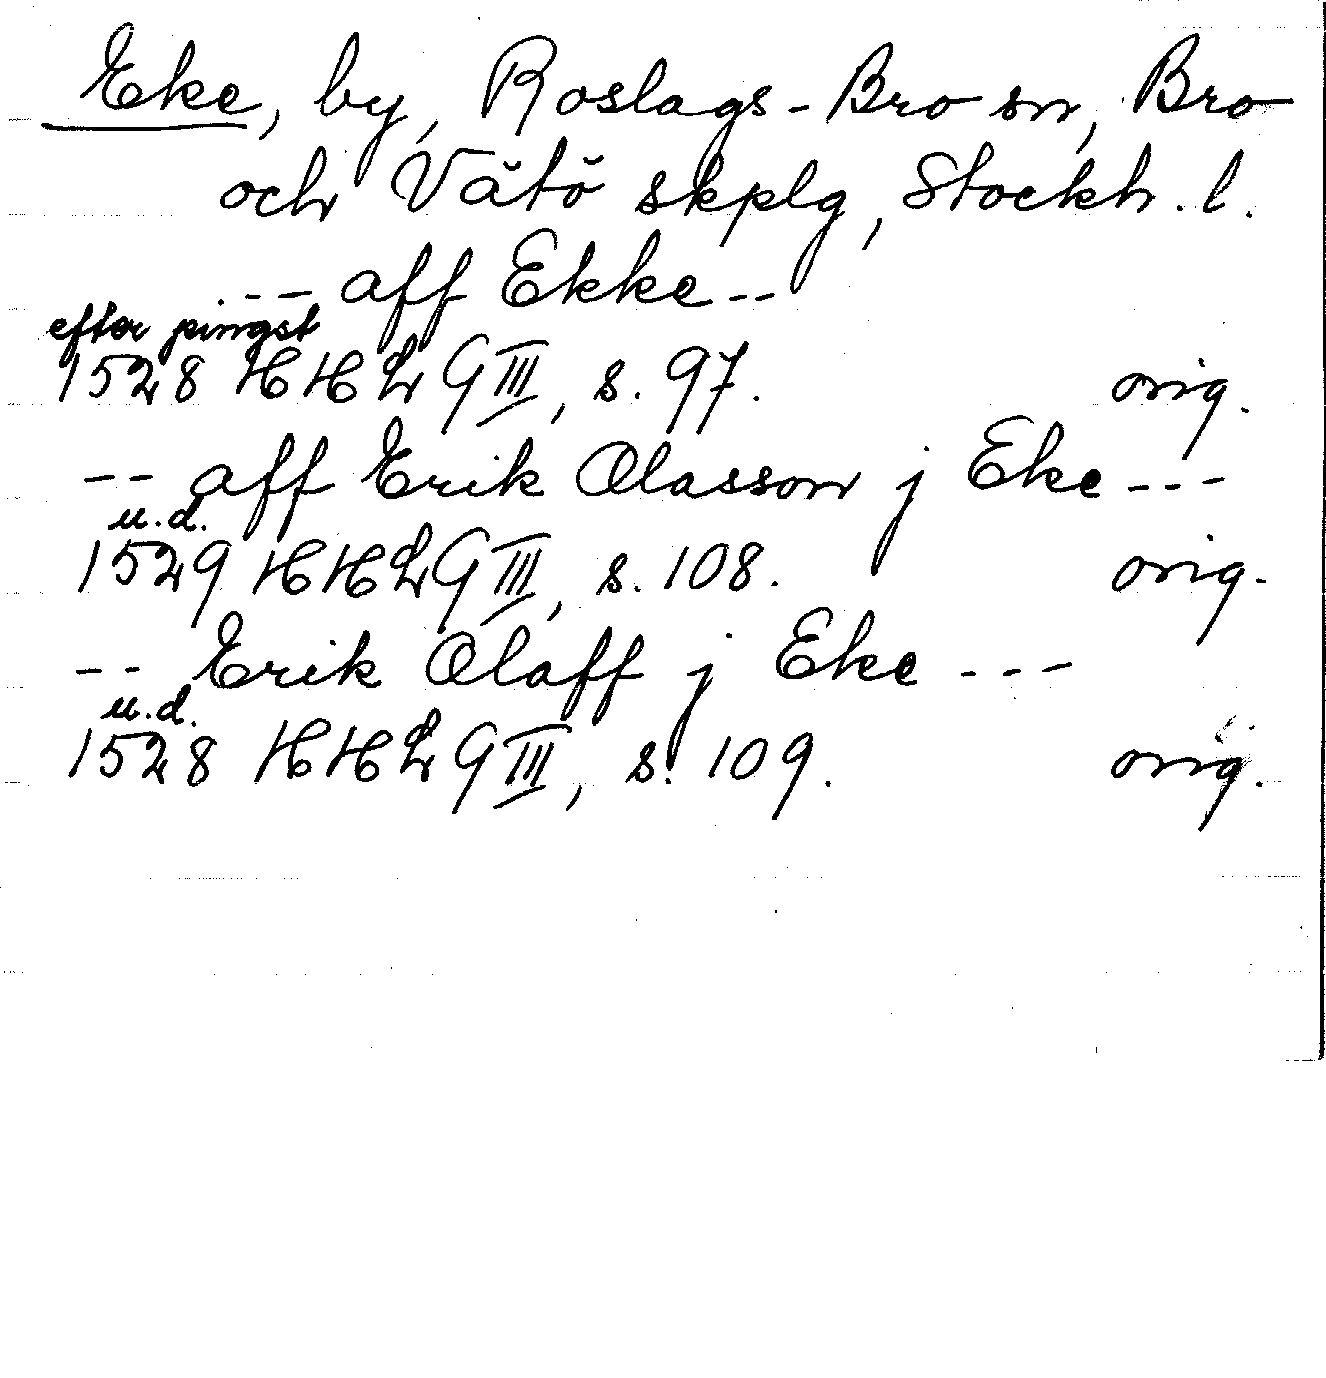 Eke, by, Roslags-Bro sn, Bro
och Vätö skplg, Stockh. l.
--- aff Ekke --
efter pingst
1528 HHLG III, s. 97. orig.
-- aff Erik Olasson j Eke ---
u.d.
1529 HHLG III, s. 108. orig.
-- Erik Olaff j Eke ---
u.d.
1528 HHLG III, s. 109. orig.